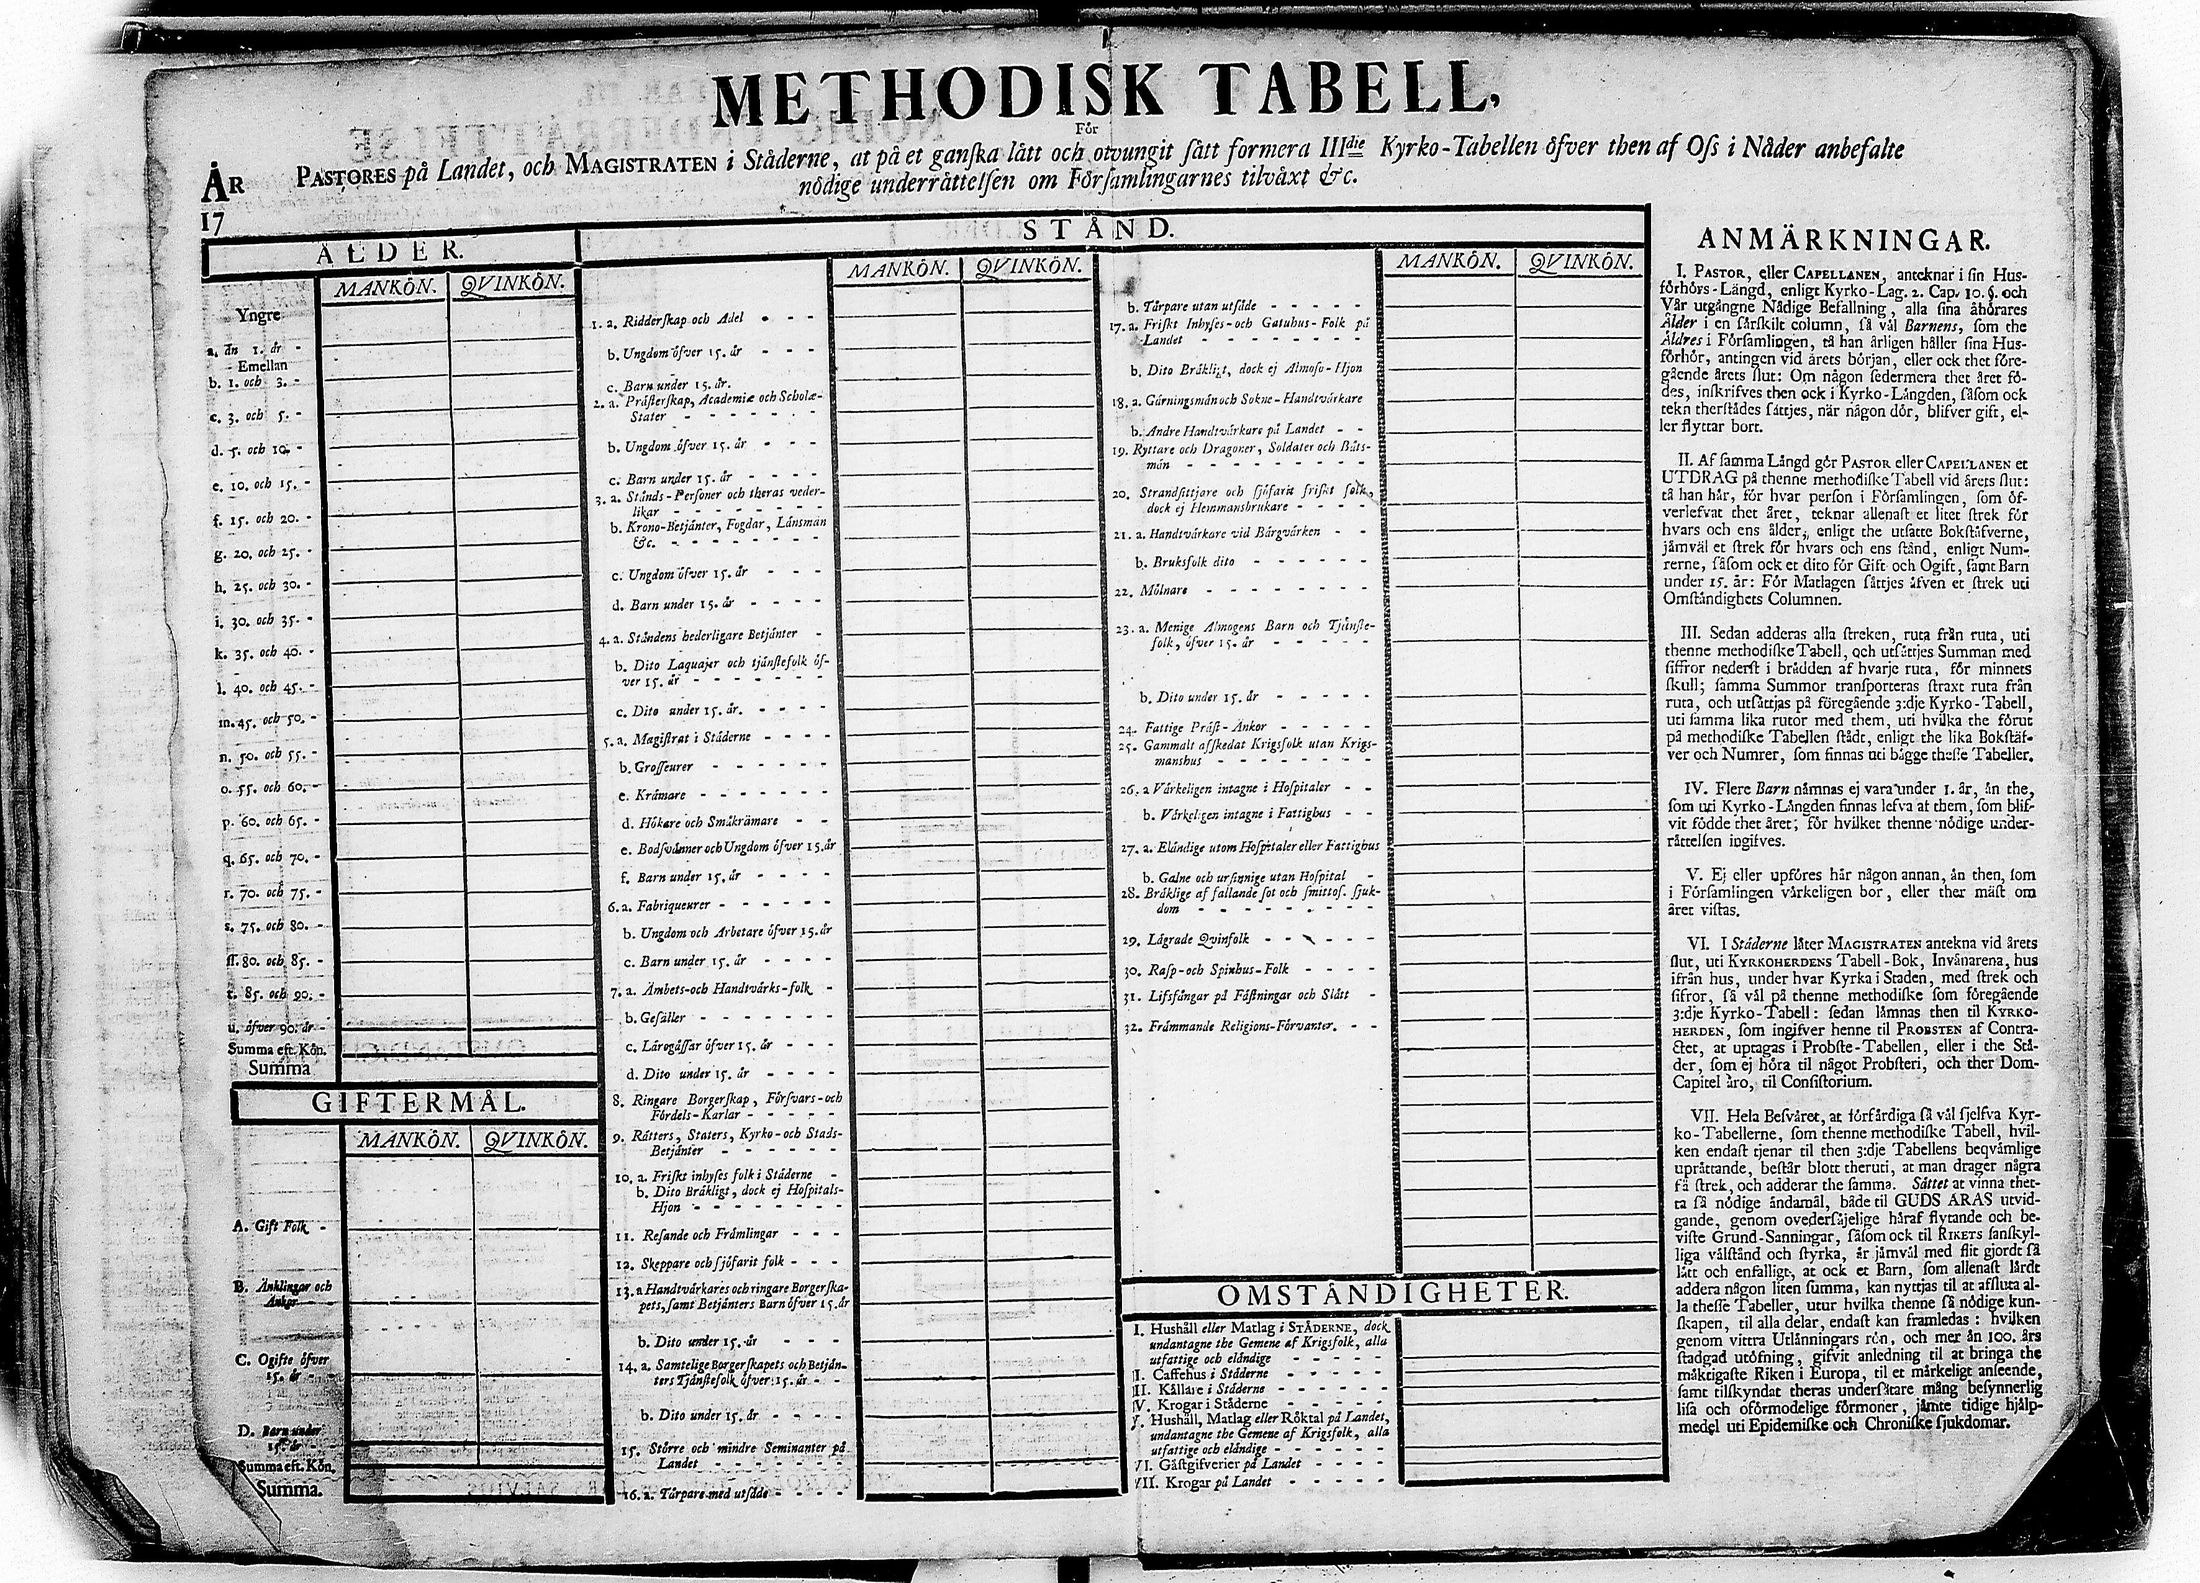 METHODISK TABELL,
För
PASTORES på Landet, och MAGISTRATEN i Ståderne, at på et ganſka lått och otvungit ſått formera IIIdie Kyrko-Tabellen öfver then af Oſs i Nåder anbefalte
nödige underråttelſen om Förſamlingarnes tilvåxt &c.
ÅR
17
ÅLDER.
MANKÖN. QVINKÖN.
Yngre
a. ån 1. år -
- Emellan
b. 1. och 3. -
c. 3. och 5. -
d. 5. och 10. -
e. 10. och 15. -
f. 15. och 20. -
g. 20. och 25. -
h. 25. och 30. -
i. 30. och 35. -
k. 35. och 40. -
l. 40. och 45. -
m. 45. och 50. -
n. 50. och 55. -
o. 55. och 60. -
p. 60. och 65. -
q. 65. och 70. -
r. 70. och 75. -
s. 75. och 80. -
ſſ. 80. och 85. -
t. 85. och 90. -
u. öfver 90. år -
Summa eft. Kön.
Summa
GIFTERMÅL.
MANKÖN. QVINKÖN.
A. Gift Folk -
B. Änklingar och
Änkor
C. Ogifte öfver
15. år - -
D. Barn under
15. år -
Summa eft. Kön.
Summa.
STÅND.
MANKÖN. QVINKÖN.
1. a. Ridderſkap och Adel - - -
b. Ungdom öfver 15. år - - -
c. Barn under 15. år.
2. a. Pråſterſkap, Academiæ och Scholæ-
Stater - - - - - -
b. Ungdom öfver 15. år - - -
c. Barn under 15. år - - - -
3. a. Stånds-Perſoner och theras veder-
likar - - - - - - -
b. Krono-Betjånter, Fogdar, Lånsmån
&c. - - - - - - -
c. Ungdom öfver 15. år - - - -
d. Barn under 15. år - - - -
4. a. Ståndens hederligare Betjånter -
b. Dito Laquajer och tjånſtefolk öf-
ver 15. år - - - - - - -
c. Dito under 15. år. - - - -
5. a. Magiſtrat i Ståderne - - - -
b. Groſſeurer - - - - - -
c. Kråmare - - - - - - -
d. Hökare och Småkrämare - -
e. Bodſvånner och Ungdom öfver 15. år
f. Barn under 15. år - - - -
6. a. Fabriqueurer - - - - - -
b. Ungdom och Arbetare öfver 15. år
c. Barn under 15. år - - - -
7. a. Åmbets-och Handtvårks-folk -
b. Geſäller - - - - - - -
c. Lårogåſſar öfver 15. år - - -
d. Dito under 15. år - - - -
8. Ringare Borgerſkap, Förſvars-och
Fördels-Karlar - - - - -
9. Råtters, Staters, Kyrko-och Stads-
Betjånter - - - - - -
10. a. Friſkt inhyſes folk i Ståderne -
b. Dito Bråkligt, dock ej Hoſpitals-
Hjon - - - - - - - -
11. Reſande och Fråmlingar - - -
12. Skeppare och ſjöfarit folk - - -
13. a Handtvårkares och ringare Borgerſka-
pets, ſamt Betjånters Barn öfver 15. år
b. Dito under 15. år - - -
14. a. Samtelige Borgerſkapets och Betjån-
ters Tjånſtefolk öfver 15. år - -
b. Dito under 15. år - - - -
15. Större och mindre Seminanter på
Landet - - - - - - -
16. a. Tårpare med utſåde - - - -
MANKÖN. QVINKÖN.
b. Tårpare utan utſåde - - - - -
17. a. Friſkt Inhyſes-och Gatuhus-Folk på
Landet - - - - - - - -
b. Dito Bråkligt, dock ej Almoſo-Hjon
18. a. Gårningsmån och Sokne-Handtvårkare
b. Andre Handtvårkare på Landet - -
19. Ryttare och Dragoner, Soldater och Båts-
mån - - - - - - - - -
20. Strandſittjare och ſjöfarit friſkt folk,
dock ej Hemmansbrukare - - - -
21. a. Handtvårkare vid Bårgvårken - -
b. Bruksfolk dito - - - - - -
22. Mölnare - - - - - - - -
23. a. Menige Almogens Barn och Tjånſte-
folk, öfver 15. år - - - - - -
b. Dito under 15. år - - - - -
24. Fattige Pråſt-Änkor - - - - -
25. Gammalt afſkedat Krigsfolk utan Krigs-
manshus - - - - - - - -
26. a Vårkeligen intagne i Hoſpitaler - -
b. Vårkeligen intagne i Fattighus - -
27. a. Elåndige utom Hoſpitaler eller Fattighus
b. Galne och urſinnige utan Hoſpital -
28. Bråklige af fallande ſot och ſmittoſ. ſjuk-
dom - - - - - - - - -
29. Lågrade Qvinfolk - - - - - -
30. Raſp-och Spinhus-Folk - - - -
31. Lifsfångar på Fåſtningar och Slått -
32. Fråmmande Religions-Förvanter. - -
OMSTÅNDIGHETER.
I. Hushåll eller Matlag i STÅDERNE, dock
undantagne the Gemene af Krigsfolk, alla
utfattige och elåndige - - - - -
II. Caffehus i Ståderne - - - - -
III. Kållare i Ståderne - - - - - -
IV. Krogar i Ståderne - - - - -
V. Hushåll, Matlag eller Röktal på Landet,
undantagne the Gemene af Krigsfolk, alla
utfattige och elåndige - - - - - -
VI. Gåſtgifverier på Landet - - - - -
VII. Krogar på Landet - - - - -
ANMÄRKNINGAR.
I. PASTOR, eller CAPELLANEN, anteknar i ſin Hus-
förhörs-Längd, enligt Kyrko-Lag. 2. Cap. 10. §. och
Vår utgångne Nådige Befallning, alla ſina åhörares
Ålder i en ſårſkilt column, ſå vål Barnens, ſom the
Äldres i Förſamlingen, tå han årligen håller ſina Hus-
förhör, antingen vid årets början, eller ock thet före-
gående årets ſlut: Om någon ſedermera thet året fö-
des, inſkrifves then ock i Kyrko-Långden, ſåſom ock
tekn therſtådes ſåttjes, når någon dör, blifver gift, el-
ler flyttar bort.
II. Af ſamma Långd gör PASTOR eller CAPELLANEN et
UTDRAG på thenne methodiſke Tabell vid årets ſlut:
tå han hår, för hvar perſon i Förſamlingen, ſom öf-
verlefvat thet året, teknar allenaſt et litet ſtrek för
hvars och ens ålder, enligt the utſatte Bokſtäfverne,
jåmvål et ſtrek för hvars och ens ſtånd, enligt Num-
rerne, ſåſom ock et dito för Gift och Ogift, ſamt Barn
under 15. år: För Matlagen ſåttjes åfven et ſtrek uti
Omſtåndighets Columnen.
III. Sedan adderas alla ſtreken, ruta från ruta, uti
thenne methodiſke Tabell, och utſåttjes Summan med
ſiffror nederſt i brådden af hvarje ruta, för minnets
ſkull; ſamma Summor transporteras ſtraxt ruta från
ruta, och utſåttjas på föregående 3:dje Kyrko-Tabell,
uti ſamma lika rutor med them, uti hvilka the förut
på methodiſke Tabellen ſtådt, enligt the lika Bokſtäf-
ver och Numrer, ſom finnas uti bågge theſſe Tabeller.
IV. Flere Barn nåmnas ej vara under 1. år, ån the,
ſom uti Kyrko-Långden finnas lefva af them, ſom blif-
vit födde thet året; för hvilket thenne nödige under-
råttelſen ingifves.
V. Ej eller upföres hår någon annan, ån then, ſom
i Förſamlingen vårkeligen bor, eller ther måſt om
året viſtas.
VI. I Ståderne låter MAGISTRATEN antekna vid årets
ſlut, uti KYRKOHERDENS Tabell-Bok, Invånarena, hus
ifrån hus, under hvar Kyrka i Staden, med ſtrek och
ſifror, ſå vål på thenne methodiſke ſom föregående
3:dje Kyrko-Tabell: ſedan låmnas then til KYRKO-
HERDEN, ſom ingifver henne til PROBSTEN af Contra-
ctet, at uptagas i Probſte-Tabellen, eller i the Stå-
der, ſom ej höra til något Probſteri, och ther Dom-
Capitel åro, til Conſiſtorium.
VII. Hela Beſvåret, at förfårdiga ſå vål ſjelfva Kyr-
ko-Tabellerne, ſom thenne methodiſke Tabell, hvil-
ken endaſt tjenar til then 3:dje Tabellens beqvåmlige
upråttande, beſtår blott theruti, at man drager några
få ſtrek, och adderar the ſamma. Såttet at vinna thet-
ta ſå nödige åndamål, både til GUDS ÄRAS utvid-
gande, genom overderſåjelige håraf flytande och be-
viſte Grund-Sanningar, ſåſom ock til RIKETS ſanſkyl-
liga vålſtånd och ſtyrka, år jåmvål med flit gjordt ſå
lått och enfalligt, at ock et Barn, ſom allenaſt lårdt
addera någon liten ſumma, kan nyttjas til at afſluta al-
la theſſe Tabeller, utur hvilka thenne ſå nödige kun-
ſkapen, til alla delar, endaſt kan framledas: hvilken
genom vittra Utlånningars rön, och mer ån 100. års
ſtadgad utöfning, gifvit anledning til at bringa the
måktigaſte Riken i Europa, til et mårkeligt anſeende,
ſamt tilſkyndat theras underſåtare mång beſynnerlig
liſa och oförmodelige förmoner, jåmte tidige hjålp-
medel uti Epidemiſke och Chroniſke ſjukdomar.